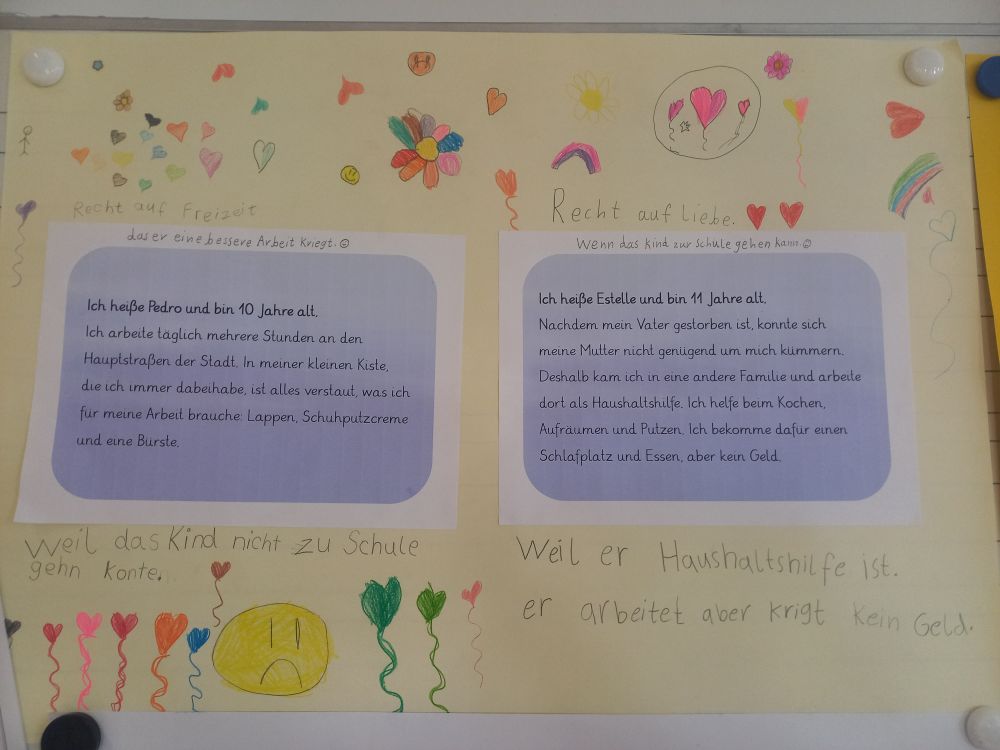 Recht auf Freizeit
das er eine bessere Arbeit kriegt.
Ich heiße Pedro und bin 10 Jahre alt.
Ich arbeite täglich mehrere Stunden an den
Hauptstraßen der Stadt. In meiner kleinen Kiste,
die ich immer dabeihabe, ist alles verstaut, was ich
für meine Arbeit brauche: Lappen, Schuhputzcreme
und eine Bürste.
Weil das Kind nicht zu Schule
gehn konte.
Recht auf Liebe.
Wenn das kind zur Schule gehen kann.
Ich heiße Estelle und bin 11 Jahre alt.
Nachdem mein Vater gestorben ist, konnte sich
meine Mutter nicht genügend um mich kümmern.
Deshalb kam ich in eine andere Familie und arbeite
dort als Haushaltshilfe. Ich helfe beim Kochen,
Aufräumen und Putzen. Ich bekomme dafür einen
Schlafplatz und Essen, aber kein Geld.
Weil er Haushaltshilfe ist.
er arbeitet aber krigt kein Geld.